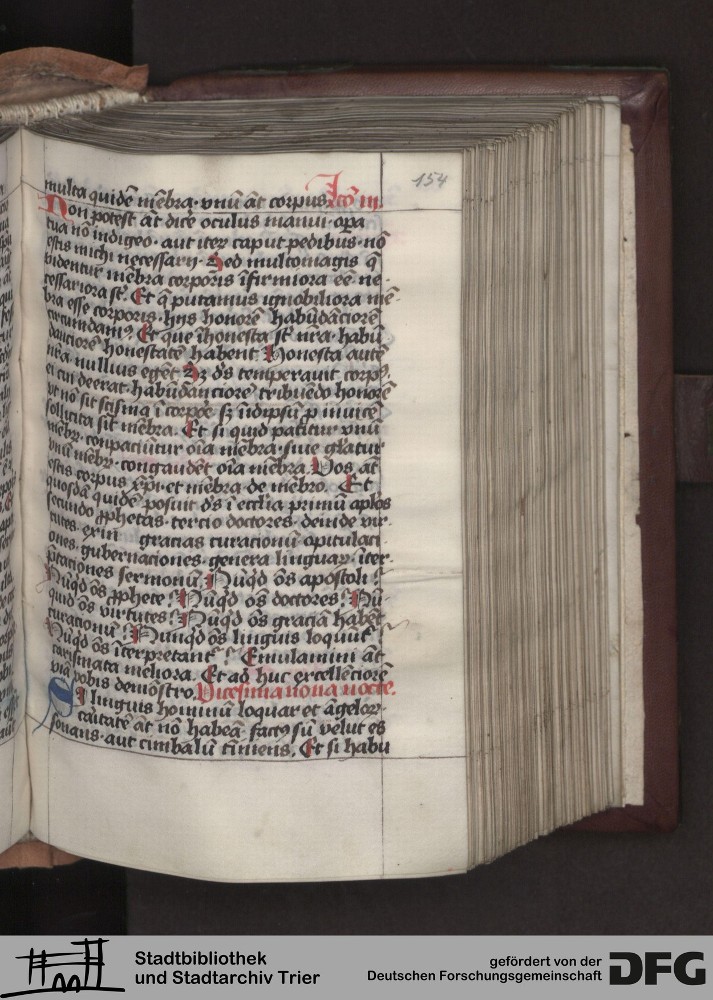 154
multa quidē mēbra · vnū āt corpus Lcō iii.
Non potest āt dicē oculus manui · opa
tua nō indigeo · aut iteȝ caput pedibus · nō
estis michi necessarij · Sed multomagis q̄
videntur mēbra corporis īfirmiora eē ne-
cessariora st̄. Et q̄ putamus ignobiliora mē-
bra esse corporis · hijs honorē habūdāciorē
circumdamꝰ. Et que īhonesta st̄ nr̄a · habū
danciorē honestatē habent. Honesta autē
nr̄a · nullius egēt. Sȝ dˢ temperauit corpꝰ.
ei cui deerat · habūdanciorē tribuēdo honorē
vt nō sit scisma ī corpoē · sȝ īidipsū p̄ inuicē
sollicita sīt mēbra. Et si quid patitur vnū
mēbꝝ · conpaciūtur oīa mēbra · siue gl̄atur
vnū mēbꝝ · congaudēt oīa mēbra. Vos āt
estis corpus xp̄i · et mēbra de mēbro. Et
quosdā quidē posuit dˢ ī eccl̄ia primū apl̄os
secundo ꝓphetas · tercio doctores · deinde vir-
tutes · exin gracias curationū opitulaci-
ones · gubernaciones · genera linguaꝝ · īter-
p̄taciones sermonū. Nūqd ōs apostoli?
Nūqd ōs ꝓphete? Nūqd ōs doctores? Nū-
quid ōs virtutes? Nūqd ōs graciā habēt
curationū? Nunqd ōs linguis loquūt̄?
Nūqd ōs īterpretant̄? Emulamini āt
carismata meliora. Et ad huc excellēciorē
viā vobis demōstro. Vicesima nona nocte.
Si linguis hominū loquar et āgeloꝝ ·
cāitatē āt nō habeā · factꝰ sū velut es
sonans · aut cimbalū tīniens. Et si habu
Stadtbibliothek
und Stadtarchiv Trier
gefördert von der
Deutschen Forschungsgemeinschaft
DFG